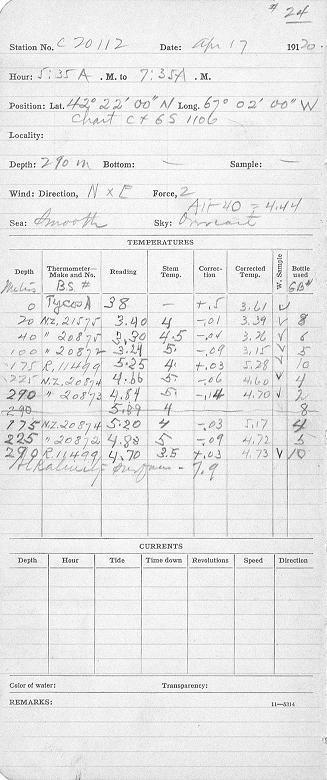 # 24
Station No. C 20112 Date: Apr 17 1920
Hour: 5:35 A . M. to 7:35 A . M.
Position: Lat. 42° 22' 00" N Long. 67° 02' 00" W
Chart C+GS 1106
Locality:
Depth: 290 m Bottom: — Sample: —
Wind: Direction, N x E Force, 2
Air 40 = 4.44
Sea: Smooth Sky: Overcast
TEMPERATURES
Depth Thermometer— Make and No. Reading Stem Temp. Correc- tion Corrected Temp. W. Sample Bottle used
Meters BS # GB#
0 Tycos A 38 — +.5 3.61 v
20 NZ. 21575 3.40 4 -.01 3.39 v 8
40 " 20875 3.30 4.5 -.04 3.26 v 6
100 " 20872 3.24 5 -.09 3.15 v 5
175 R. 11499 5.25 4 +.03 5.28 v 10
225 NZ. 20874 4.66 5 -.06 4.60 v 4
290 " 20873 4.84 5 -.14 4.70 v 2
290 5.09 4 8
175 NZ. 20874 5.20 4 -.03 5.17 4
225 " 20872 4.80 5 -.09 4.72 5
290 R. 11499 4.70 3.5 +.03 4.73 v 10
Alkalinity Surface - 7.9
CURRENTS
Depth Hour Tide Time down Revolutions Speed Direction
Color of water: Transparency:
REMARKS: 11—5314